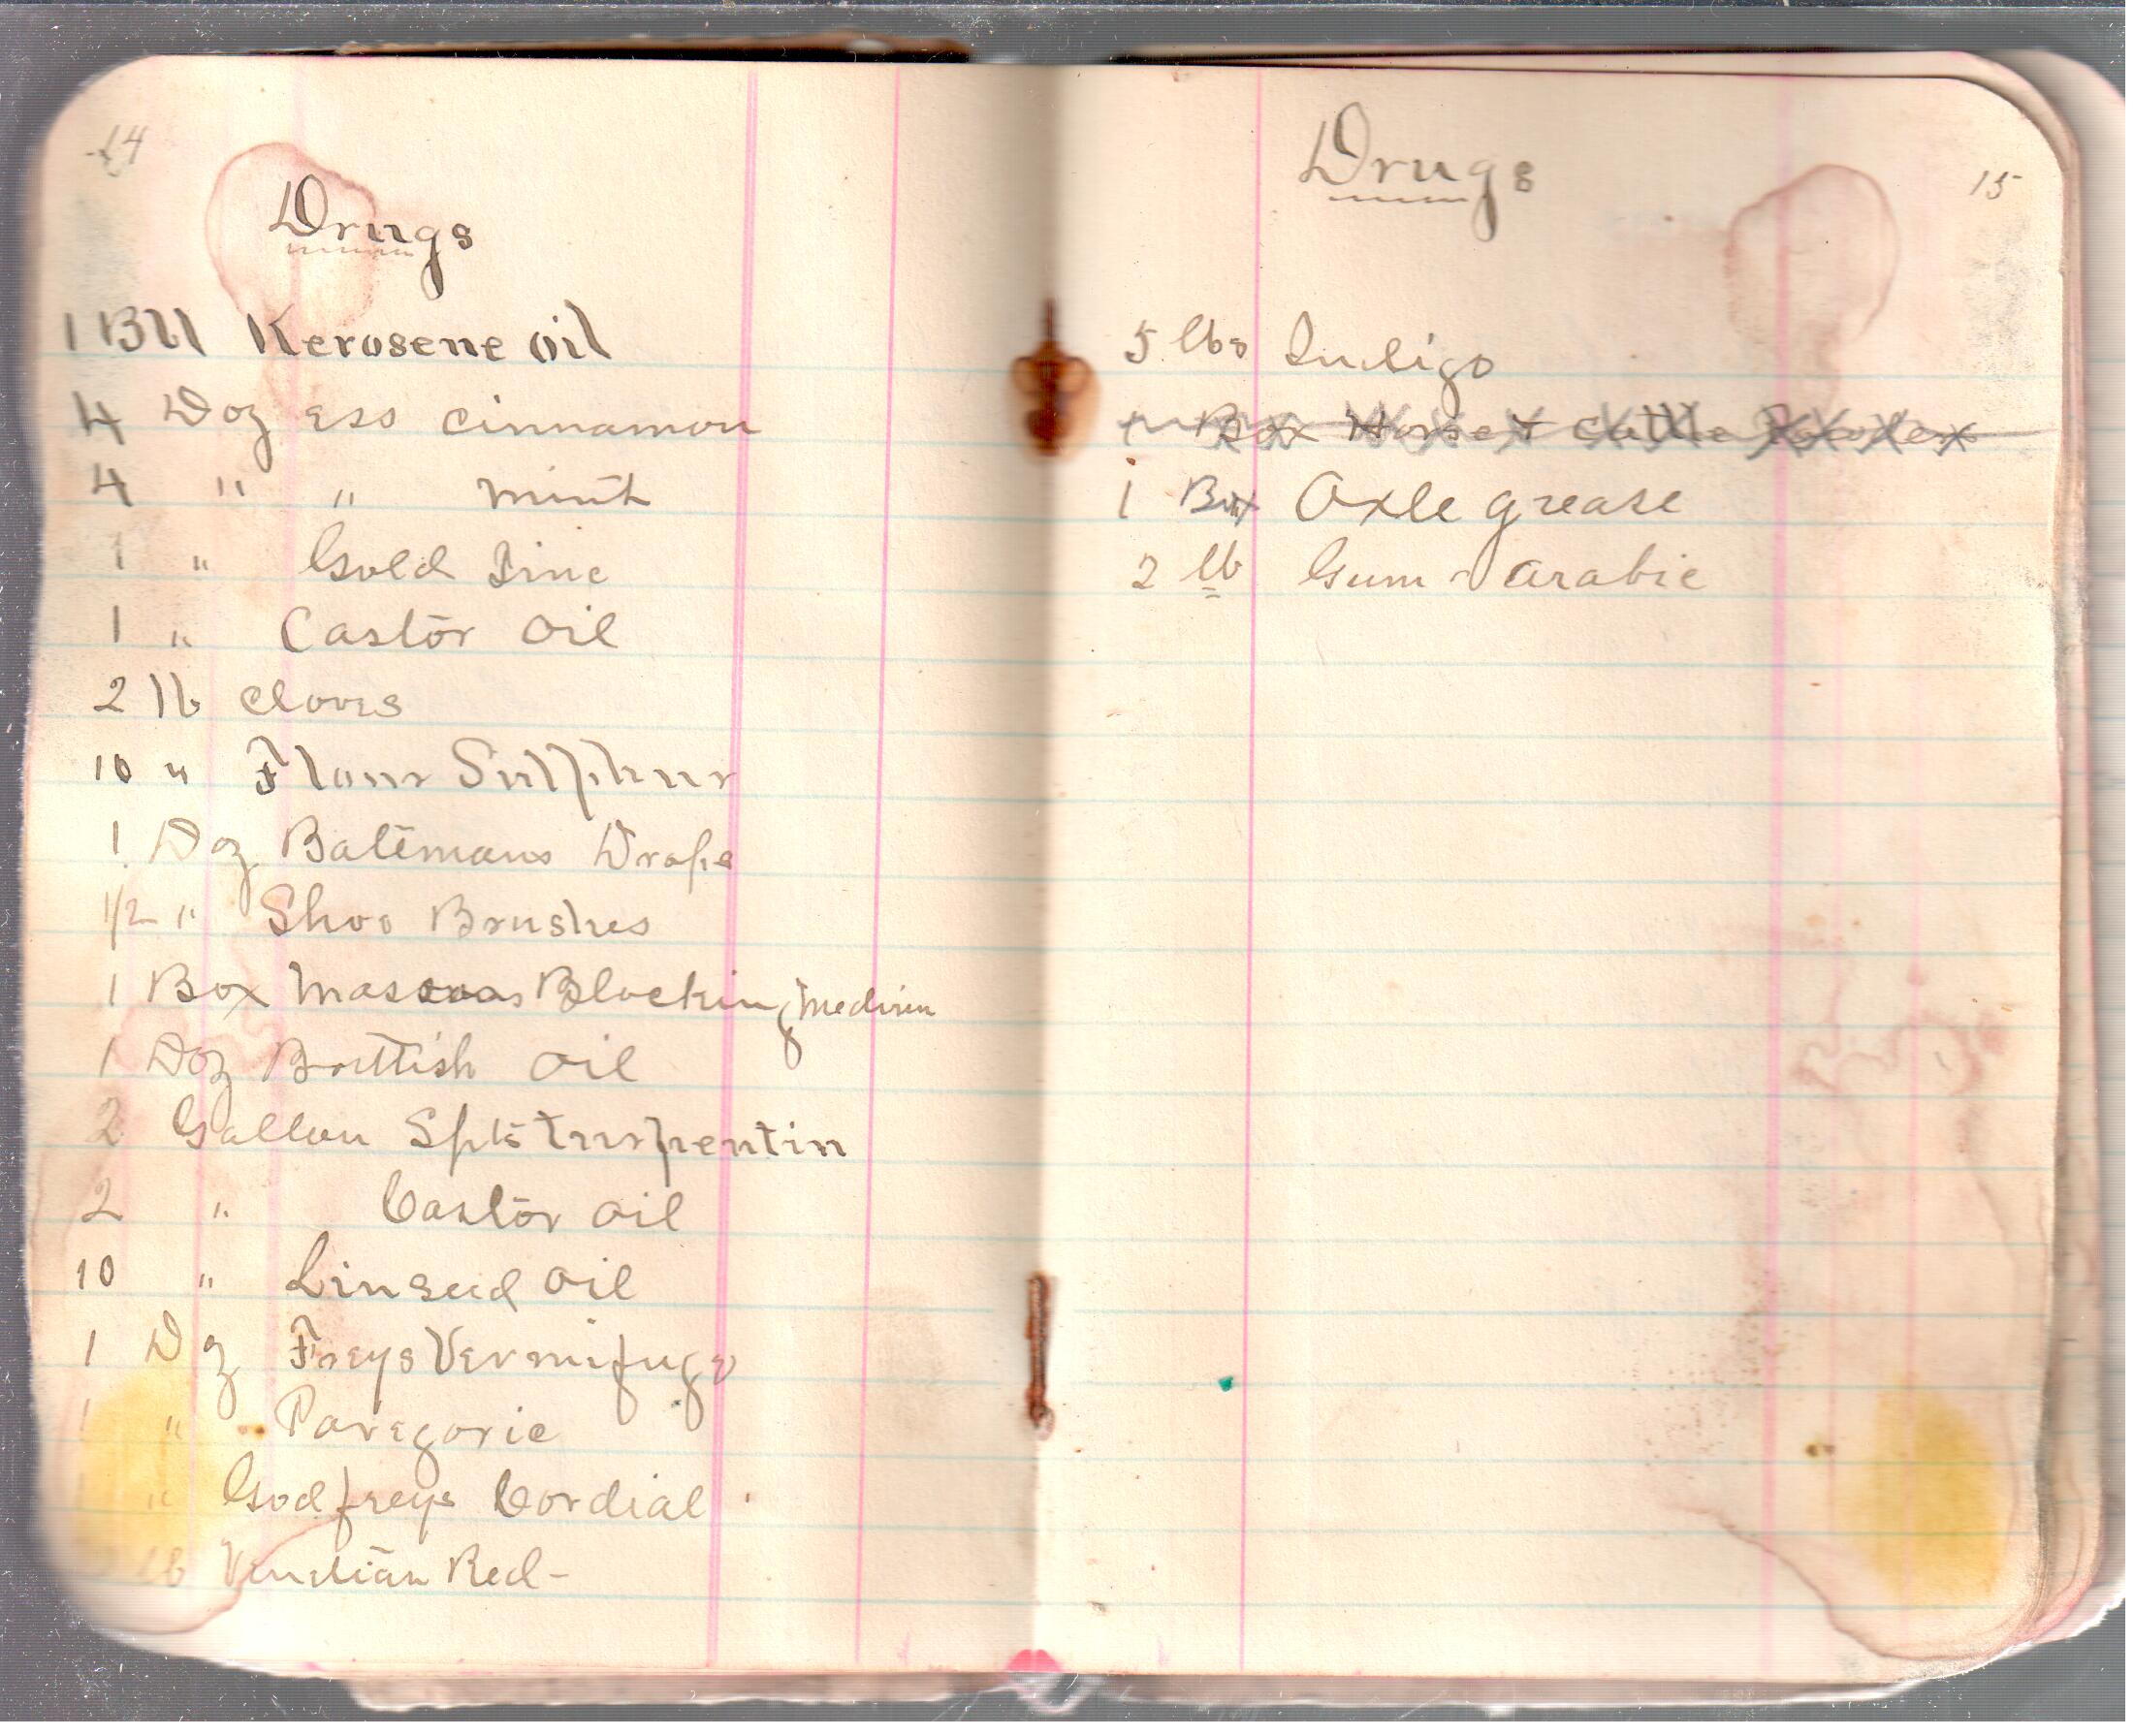 14
Drugs
1 Bll Kerosene oil
4 Doz ess cinnamon
4 " " mint
1 " Gold Dine
1 " Castor oil
2 lb cloves
10 " Flour Sulphur
1 Doz Batemans Drops
1/2 " Shoe Brushes
1 Box Masons Blocking Medium
1 Doz Brittish oil
2 Gallon Spts Turpentin
2 " Castor oil
10 " Linseed oil
1 Dz Freys Vermifuge
1 " Paregoric
1 " Godfreys Cordial
lb Venetian Red-
15
Drugs
5 lbs Indigo
1 Box Horse & Cattle Powders
1 Box Axle grease
2 lb Gum arabic